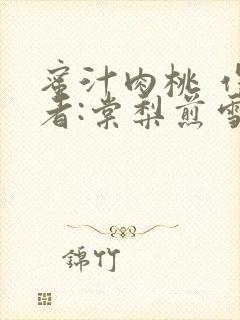 蜜汁肉桃 作
者:棠梨煎雪
錦竹